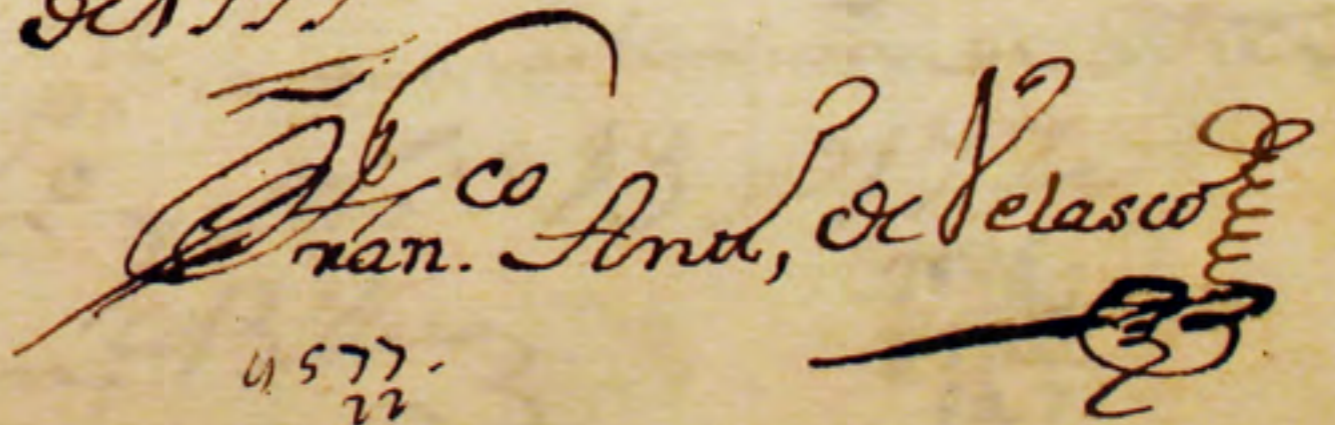 Fran.co Ant, de Velasco
4577.
22